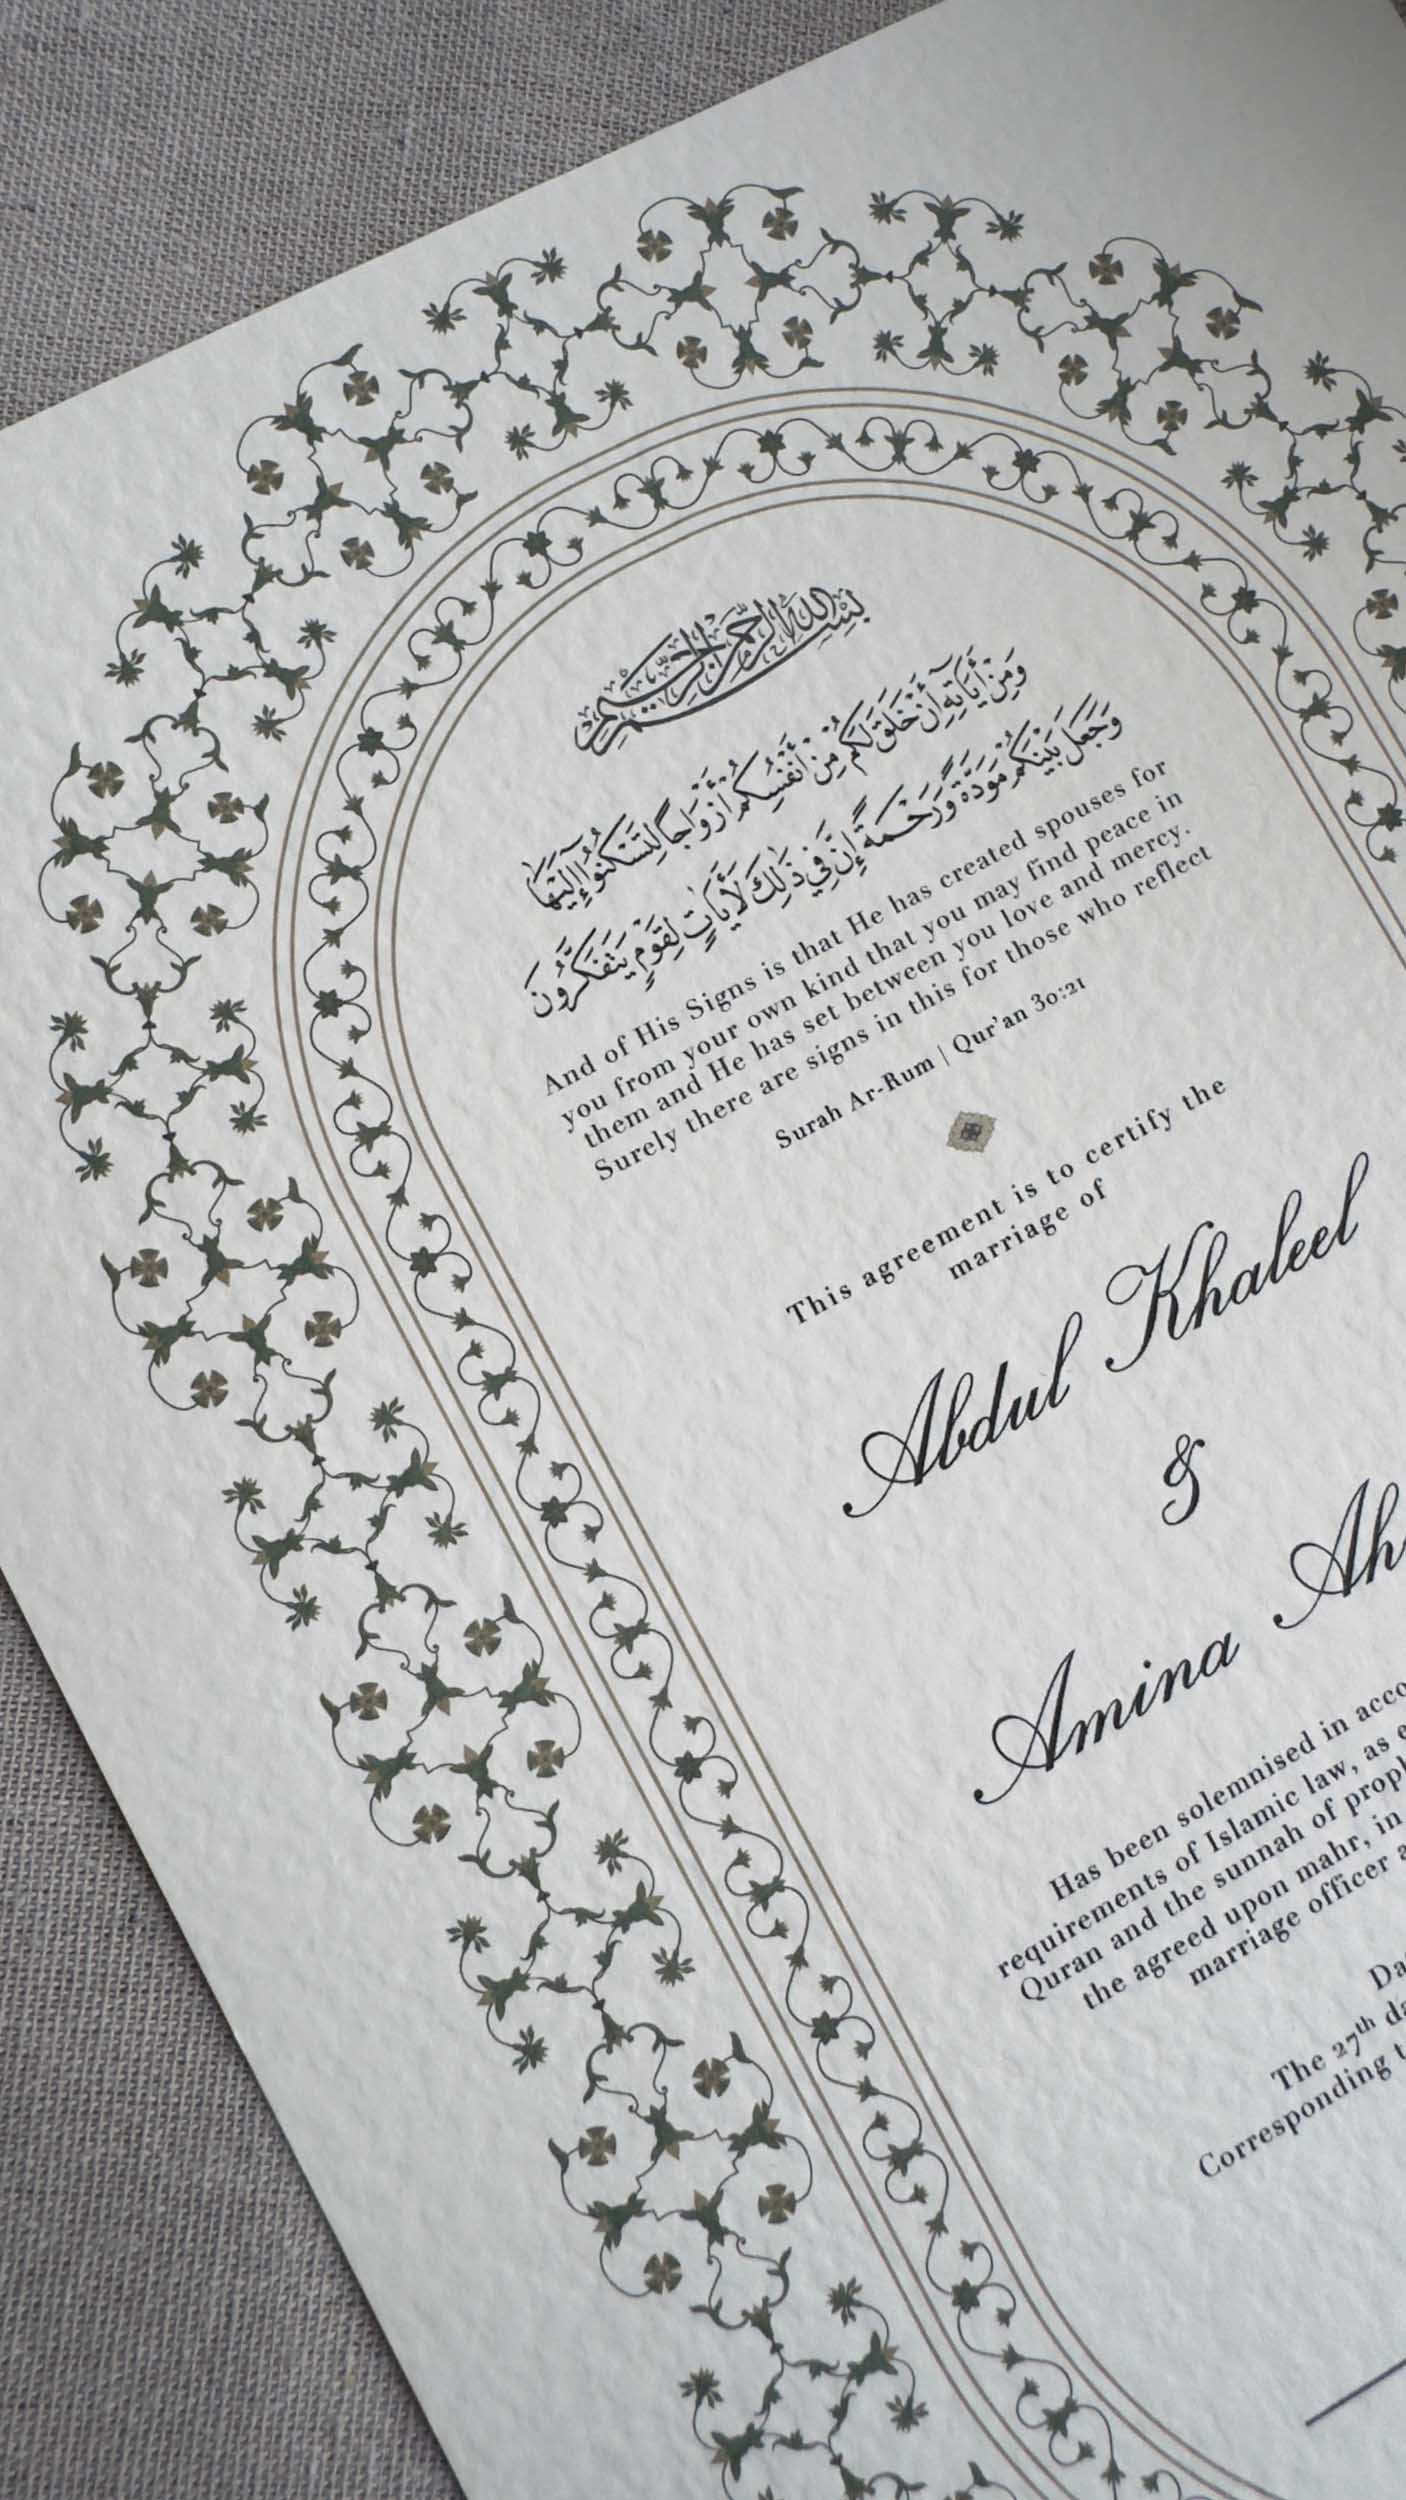 بِسْمِ اللهِ الرَّحْمٰنِ الرَّحِيْمِ
وَمِنْ أٰيَاتِهِ أَنْ خَلَقَ لَكُمْ مِّنْ أَنْفُسِكُمْ أَزْوَاجًا لِّتَسْكُنُوٓا إِلَيْهَا
وَجَعَلَ بَيْنَكُمْ مَوَدَّةً وَرَحْمَةً إِنَّ فِي ذٰلِكَ لَأٰيَاتٍ لِقَوْمٍ يَتَفَكَّرُونَ
And of His Signs is that He has created spouses for
you from your own kind that you may find peace in
them and He has set between you love and mercy.
Surely there are signs in this for those who reflect
Surah Ar-Rum | Qur'an 30:21
This agreement is to certify the
marriage of
Abdul Khaleel
&
Amina
Has been solemnised in
requirements of Islamic law, as
Quran and the sunnah of
the agreed upon mahr, in
marriage officer
The 27th
Corresponding